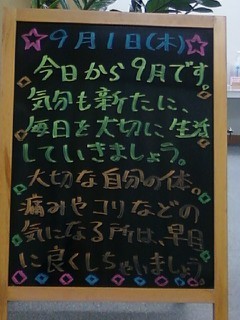 9月1日(木)
今日から9月です。
気分も新たに、
毎日を大切に生活
していきましょう。
大切な自分の体。
痛みやコリなどの
気になる所は、早目
に良くしちゃいましょう。